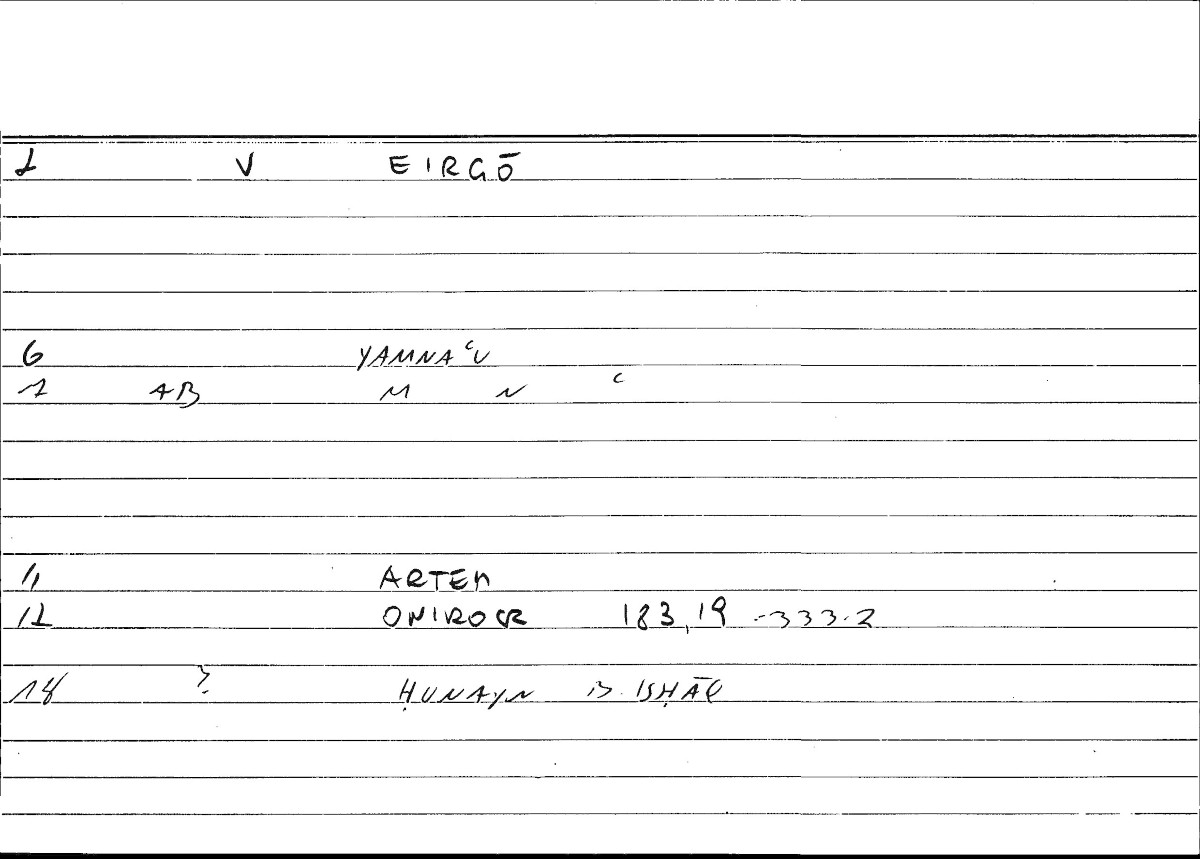 1 V EIRGŌ
6 YAMNAʿU
7 AB M N ʿ
11 ARTEM
12 ONIROCR 183,19 -333.2
18 ? ḤUNAYN B. ISḤĀQ